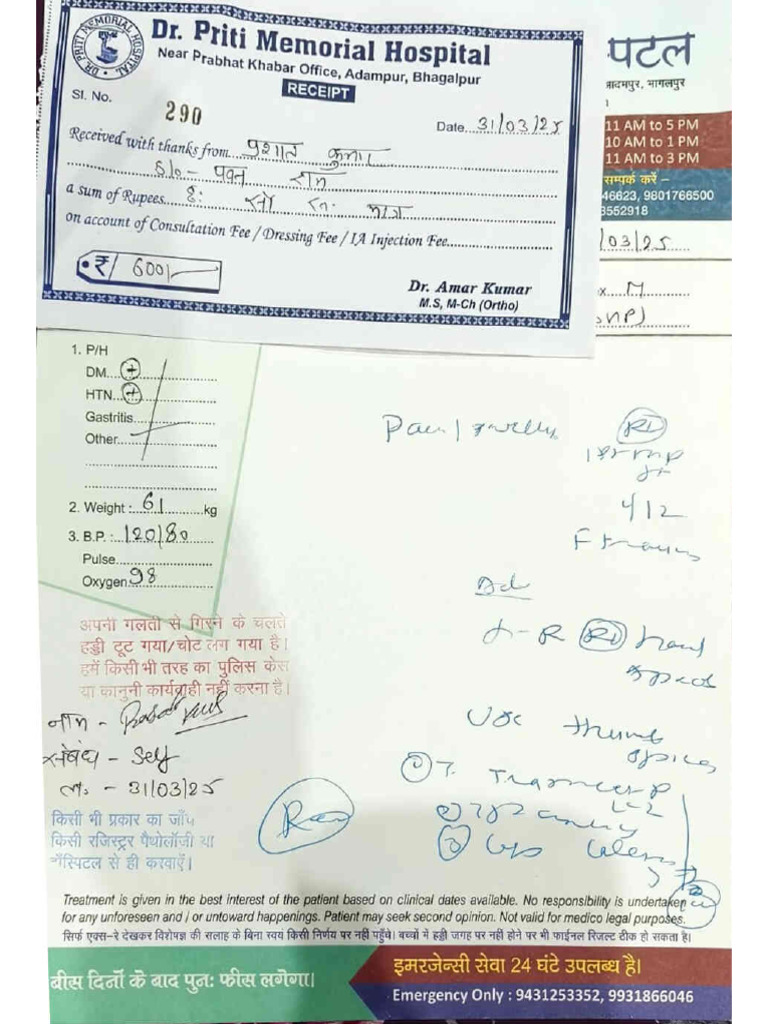 Dr. Priti Memorial Hospital
Near Prabhat Khabar Office, Adampur, Bhagalpur
DR. PRITI MEMORIAL HOSPITAL
RECEIPT
Sl. No. 290
Date 31/03/25
Received with thanks from प्रशांत कुमार
S/o - पवन राम
a sum of Rupees छः सौ रू. मात्र
on account of Consultation Fee / Dressing Fee / IA Injection Fee
₹/ 600/-
Dr. Amar Kumar
M.S, M-Ch (Ortho)
स्पिटल
आदमपुर, भागलपुर
11 AM to 5 PM
10 AM to 1 PM
11 AM to 3 PM
सम्पर्क करें -
46623, 9801766500
3552918
/03/25
x M
1. P/H
DM +
HTN +
Gastritis
Other
2. Weight : 61 kg
3. B.P. : 120/80
Pulse
Oxygen 98
Pain / swelling
Rt
4/12
Ad
X-R Rt hand
thumb
spica
अपनी गलती से गिरने के चलते
हड्डी टूट गया/चोट लग गया है।
हमें किसी भी तरह का पुलिस केस
या कानुनी कार्यवाही नहीं करना है।
नाम -
संबंध - Self
ता. - 31/03/25
किसी भी प्रकार का जाँच
किसी रजिस्टर पैथोलॉजी या
हॉस्पिटल से ही करवाएँ।
Treatment is given in the best interest of the patient based on clinical dates available. No responsibility is undertaken
for any unforeseen and / or untoward happenings. Patient may seek second opinion. Not valid for medico legal purposes.
सिर्फ एक्स-रे देखकर विशेषज्ञ की सलाह के बिना स्वयं किसी निर्णय पर नहीं पहुँचे। बच्चों में हड्डी जगह पर नहीं होने पर भी फाईनल रिजल्ट ठीक हो सकता है।
बीस दिनों के बाद पुनः फीस लगेगा।
इमरजेन्सी सेवा 24 घंटे उपलब्ध है।
Emergency Only : 9431253352, 9931866046